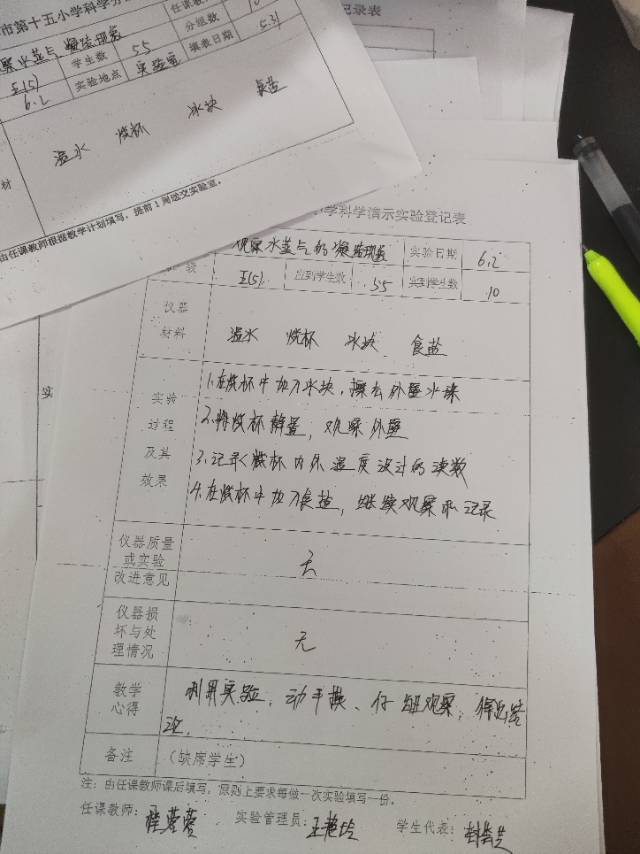 市第十五小学科学分
任课教
学生数 55 分组数 10
五(5) 实验地点 实验室 填表日期 5.31
6.2
温水 烧杯 冰块 食盐
材
由任课教师根据教学计划填写，提前1周送交实验室。
记录表
小学科学演示实验登记表
观察水蒸气的凝结现象 实验日期 6.2
级 五(5) 应到学生数 55 实到学生数 10
仪器
材料
温水 烧杯 冰块 食盐
实验
过程
及其
效果
1.在烧杯中加入冰块，擦去外壁水珠
2.将烧杯静置，观察外壁
3.记录烧杯内外温度计的读数
4.在烧杯中加入食盐，继续观察和记录
仪器质量
或实验
改进意见
无
仪器损
坏与处
理情况
无
教学
心得
利用实验，动手做、仔细观察，得出结
论.
备注 (缺席学生)
注：由任课教师课后填写，原则上要求每做一次实验填写一份。
任课教师： 实验管理员： 学生代表：
实